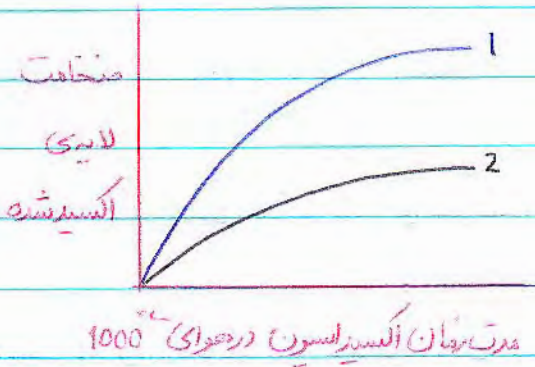 1
ضخامت
لایه‌ی
2
اکسید شده
مدت زمان اکسیداسیون در هوای 1000°C